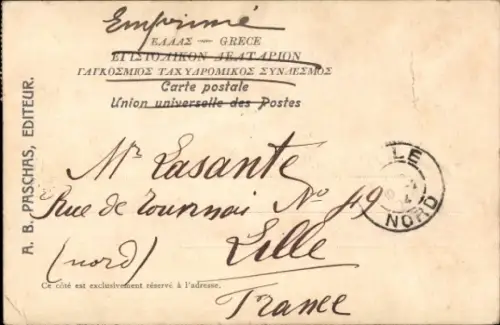 Emprimé
ΕΛΛΑΣ — GRECE
ΕΠΙΣΤΟΛΙΚΟΝ ΔΕΛΤΑΡΙΟΝ
ΠΑΓΚΟΣΜΙΟΣ ΤΑΧΥΔΡΟΜΙΚΟΣ ΣΥΝΔΕΣΜΟΣ
Carte postale
Union universelle des Postes
A. B. PASCHAS, EDITEUR.
LE
NORD
Mr Lasante
Rue de Tournai No 49
Lille
(nord)
Ce côté est exclusivement réservé à l'adresse.
France